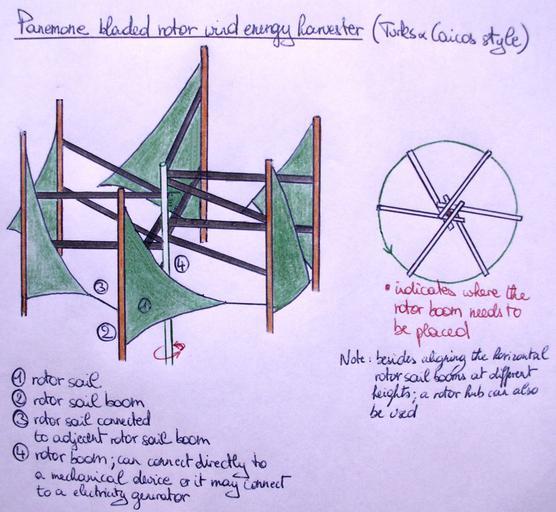 Panemone bladed rotor wind energy harvester (Turks & Caicos style)
④
③
①
②
• indicates where the
rotor boom needs to
be placed
Note: besides aligning the horizontal
rotor sail booms at different
heights; a rotor hub can also
be used
① rotor sail
② rotor sail boom
③ rotor sail connected
to adjecent rotor sail boom
④ rotor boom; can connect directly to
a mechanical device or it may connect
to a electricity generator